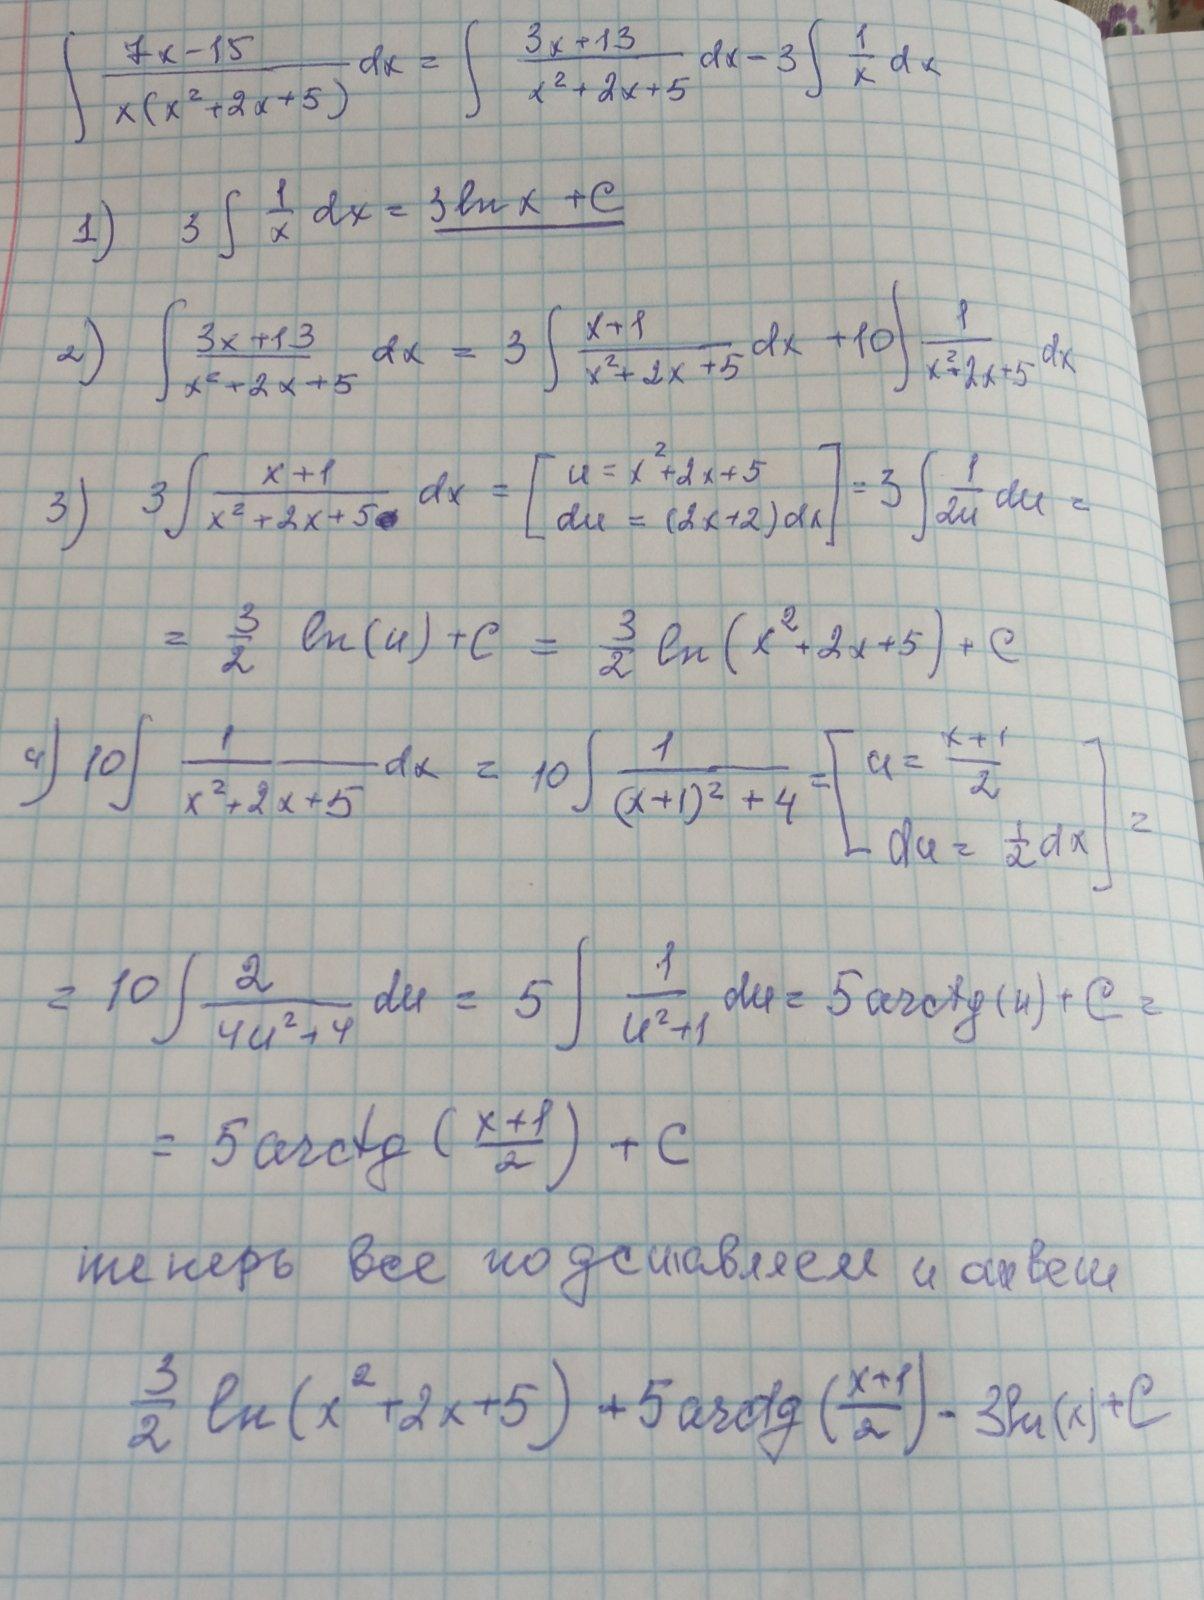 ∫ (7x-15)/(x(x²+2x+5)) dx = ∫ (3x+13)/(x²+2x+5) dx - 3∫ 1/x dx
1) 3∫ 1/x dx = 3ln x + C
2) ∫ (3x+13)/(x²+2x+5) dx = 3∫ (x+1)/(x²+2x+5) dx + 10∫ 1/(x²+2x+5) dx
3) 3∫ (x+1)/(x²+2x+5) dx = [u = x²+2x+5 du = (2x+2)dx] = 3∫ 1/2u du =
= 3/2 ln(u) + C = 3/2 ln(x²+2x+5) + C
4) 10∫ 1/(x²+2x+5) dx = 10∫ 1/((x+1)²+4) = [u = (x+1)/2 du = 1/2 dx] =
= 10∫ 2/(4u²+4) du = 5∫ 1/(u²+1) du = 5arctg(u) + C =
= 5arctg((x+1)/2) + C
теперь все подставляем и ответ
3/2 ln(x²+2x+5) + 5arctg((x+1)/2) - 3ln(x) + C